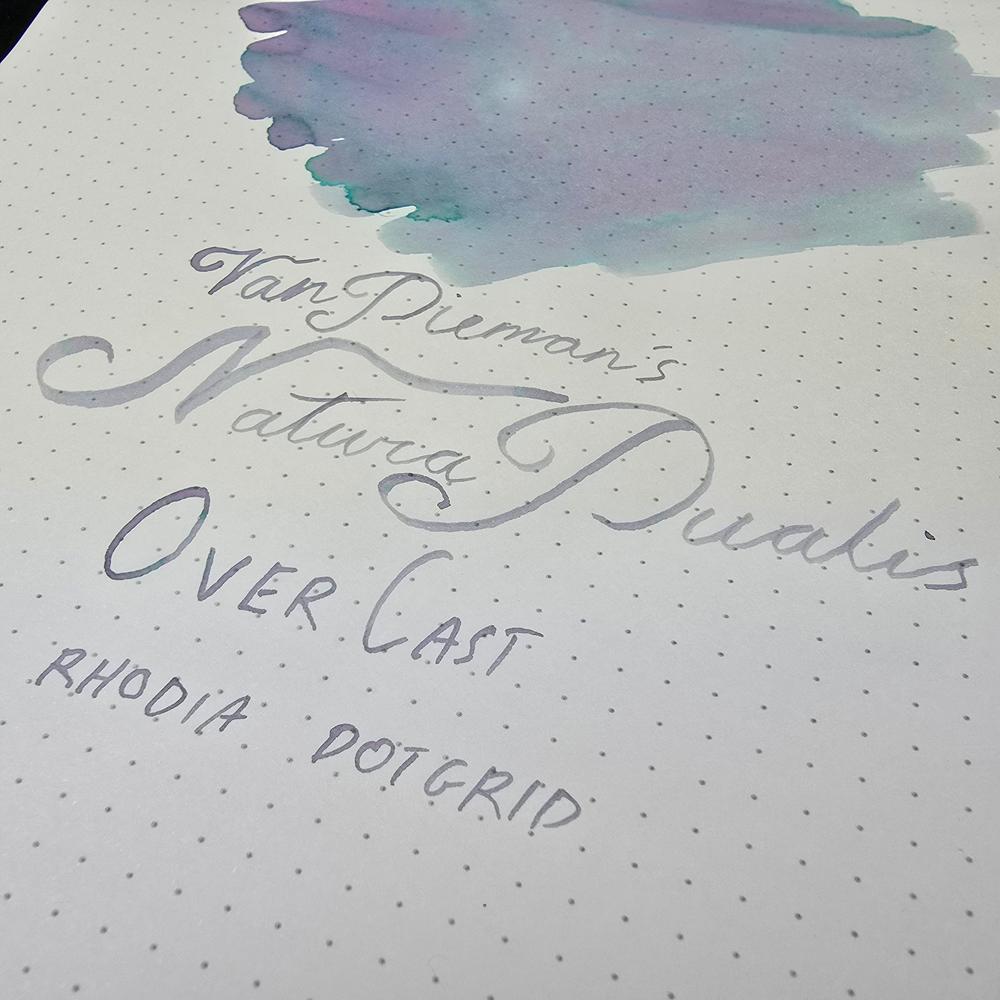 Van Dieman's
Natura Dualis
OVER CAST
RHODIA DOTGRID